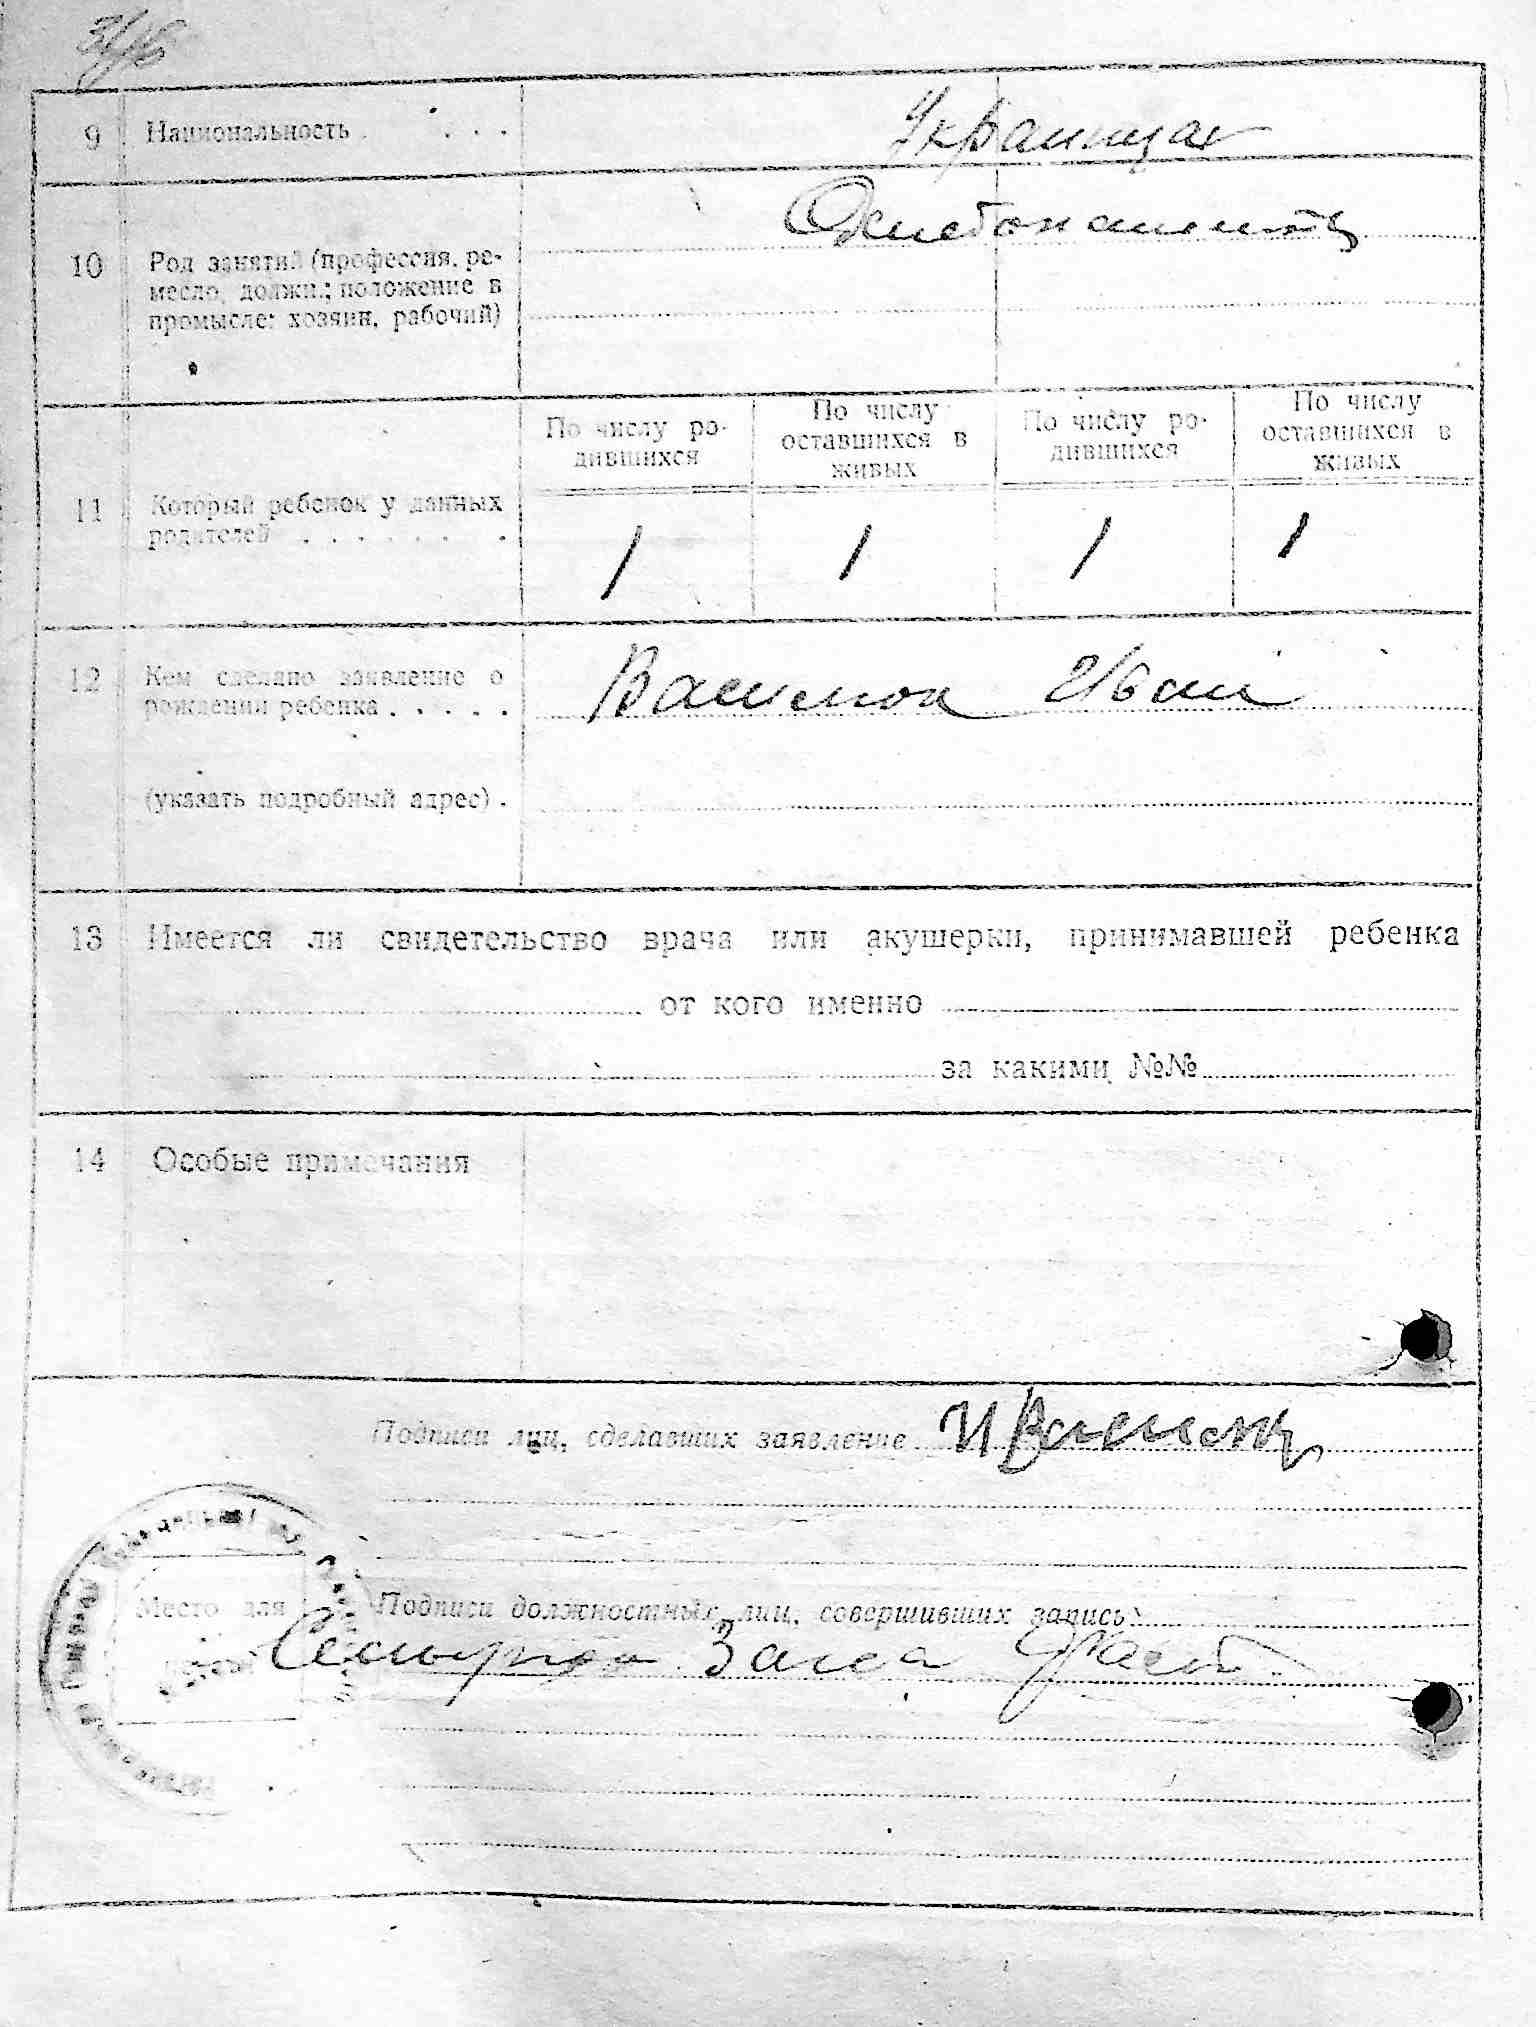 9 Национальность . . . . Украинцы
10 Род занятий (профессия, ре-
месло, должн.; положение в
промысле: хозяин, рабочий)
По числу ро-
дившихся
По числу
оставшихся в
живых
По числу ро-
дившихся
По числу
оставшихся в
живых
11 Который ребенок у данных
родителей . . . . . . .
1 1 1 1
12 Кем сделано заявление о
рождении ребенка . . . . .
(указать подробный адрес) .
13 Имеется ли свидетельство врача или акушерки, принимавшей ребенка
от кого именно
за какими №№
14 Особые примечания
Подписи лиц, сделавших заявление
Место для
печати
Подписи должностных лиц, совершивших запись:
Загса